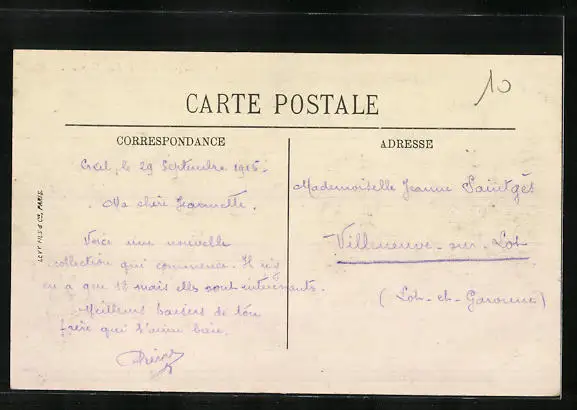 10
CARTE POSTALE
CORRESPONDANCE
ADRESSE
le 29 Septembre 1915.
Ma chère Jeannette.
Voici une nouvelle
collection qui commence. Il n'y
en a que 12 mais elles sont intéressants.
Meilleurs baisers de ton
frère qui t'aime bien.
Mademoiselle Jeanne Saintgès
Villeneuve-sur-Lot
(Lot-et-Garonne)
LEVY FILS & Cie, PARIS.